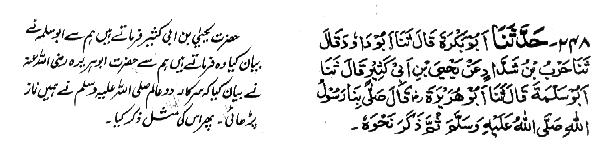 ۲۴۸- حَدَّثَنَا اَبُوْبَكْرَةَ قَالَ ثَنَا اَبُوْدَاوٗدَ قَالَ
ثَنَا حَرْبُ بْنُ شَدَّادٍ عَنْ يَحْيَى بْنِ اَبِيْ كَثِيْرٍ قَالَ ثَنَا
اَبُوْ سَلَمَةَ قَالَ ثَنَا اَبُوْ هُرَيْرَةَ رض قَالَ صَلّٰى بِنَا رَسُوْلُ
اللهِ صَلَّى اللهُ عَلَيْهِ وَسَلَّمَ ثُمَّ ذَكَرَ نَحْوَهٗ۔
حضرت یحییٰ بن ابی کثیر فرماتے ہیں ہم سے ابوسلمہ نے
بیان کیا وہ فرماتے ہیں ہم سے حضرت ابوہریرہ رضی اللہ عنہ
نے بیان کیا کہ سرکار دوعالم صلی اللہ علیہ وسلم نے ہمیں نماز
پڑھائی۔ پھر اس کی مثل ذکر کیا۔